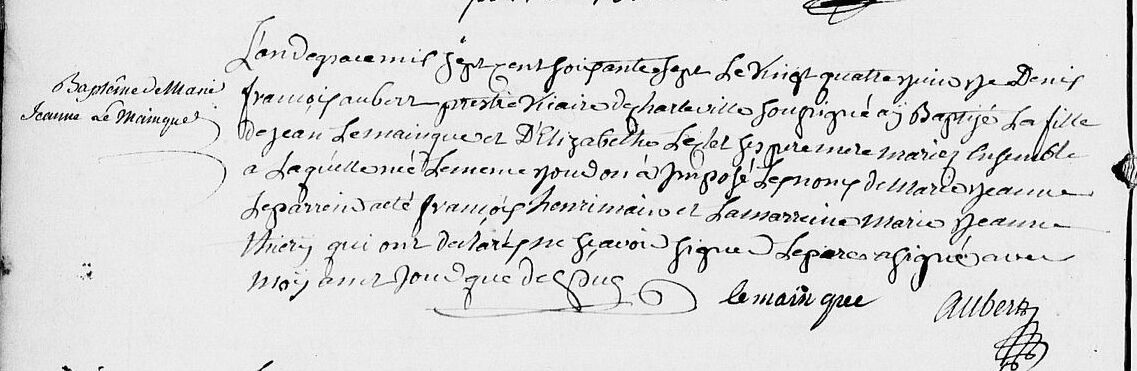 Baptême de Marie
Jeanne Le Mainque
L'an de grace mil sept cent soixante sept le vingt quatre juin je Denis
françois aubert prestre vicaire de charleville soussigné aÿ Baptisé La fille
de jean Lemainque et D'Elizabethe ses pere mere mariez Ensemble
a Laquelle née Le meme jour on à Imposé Les noms de Marie jeanne
Le parrein a eté françois henri main et La marreine marie jeanne
thierÿ qui ont declarés ne sçavoir signer Le pere a signé avec
moÿ audit jour que dessus
lemainque aubert